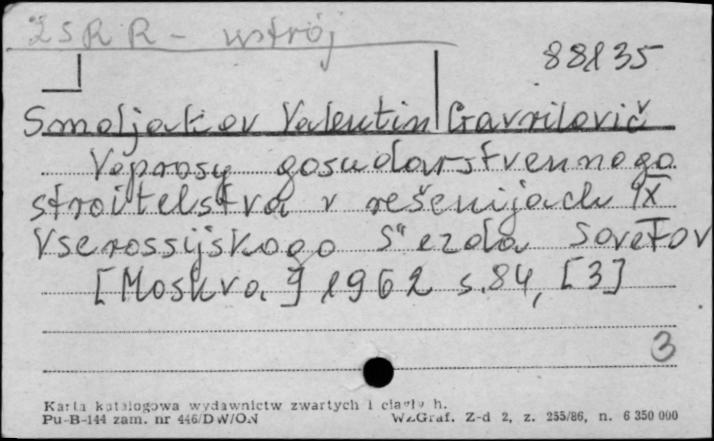 ZSRR - ustrój
88135
Smoljakov Valentin Gavrilovič
Voprosy gosudarstvennogo
stroitelstva v rešenijach IX
Vserossijskogo S"ezda Sovetov
[Moskva] 1962 s.84, [3]
3
Karta katalogowa wydawnictw zwartych i ciągły h.
Pu-B-144 zam. nr 446/DW/ON WZGraf. Z-d 2, z. 255/86, n. 6 350 000